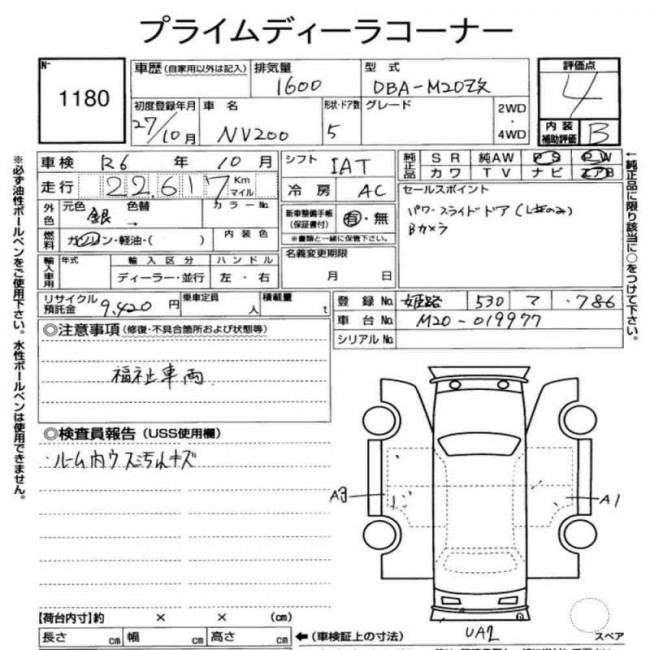 プライムディーラコーナー
No 1180
車歴 (自家用以外は記入)
排気量 1600
型式 DBA-M20改
評価点 4
初度登録年月 27/10月
車名 NV200
形状・ドア数 5
グレード
2WD・4WD
内装補助評価 B
車検 R6 年 10月
シフト IAT
純正品 SR 純AW PS PW
カワ TV ナビ エアB
走行 22,617 Km マイル
冷房 AC
セールスポイント
パワースライドドア (L左のみ)
Bカメラ
外色 元色 銀 色替 → カラーNo.
新車整備手帳(保証書付) 有・無
※書類と一緒に保管下さい。
燃料 ガソリン・軽油・( )
内装色
名義変更期限
月 日
輸入車用 年式 輸入区分 ハンドル
ディーラー・並行 左・右
リサイクル預託金 9,420円
乗車定員 人
積載量 t
登録No. 姫路 530 マ ・786
車台No. M20-019977
シリアルNo.
◎注意事項 (修復・不具合箇所および状態等)
福祉車両
◎検査員報告 (USS使用欄)
・ルーム内ウスヨゴレキズ
A3
A1
UA2
スペア
【荷台内寸】約 × × (cm)
長さ cm 幅 cm 高さ cm
←(車検証上の寸法)
※必ず油性ボールペンをご使用下さい。水性ボールペンは使用できません。
←純正品に限り該当に○をつけて下さい。